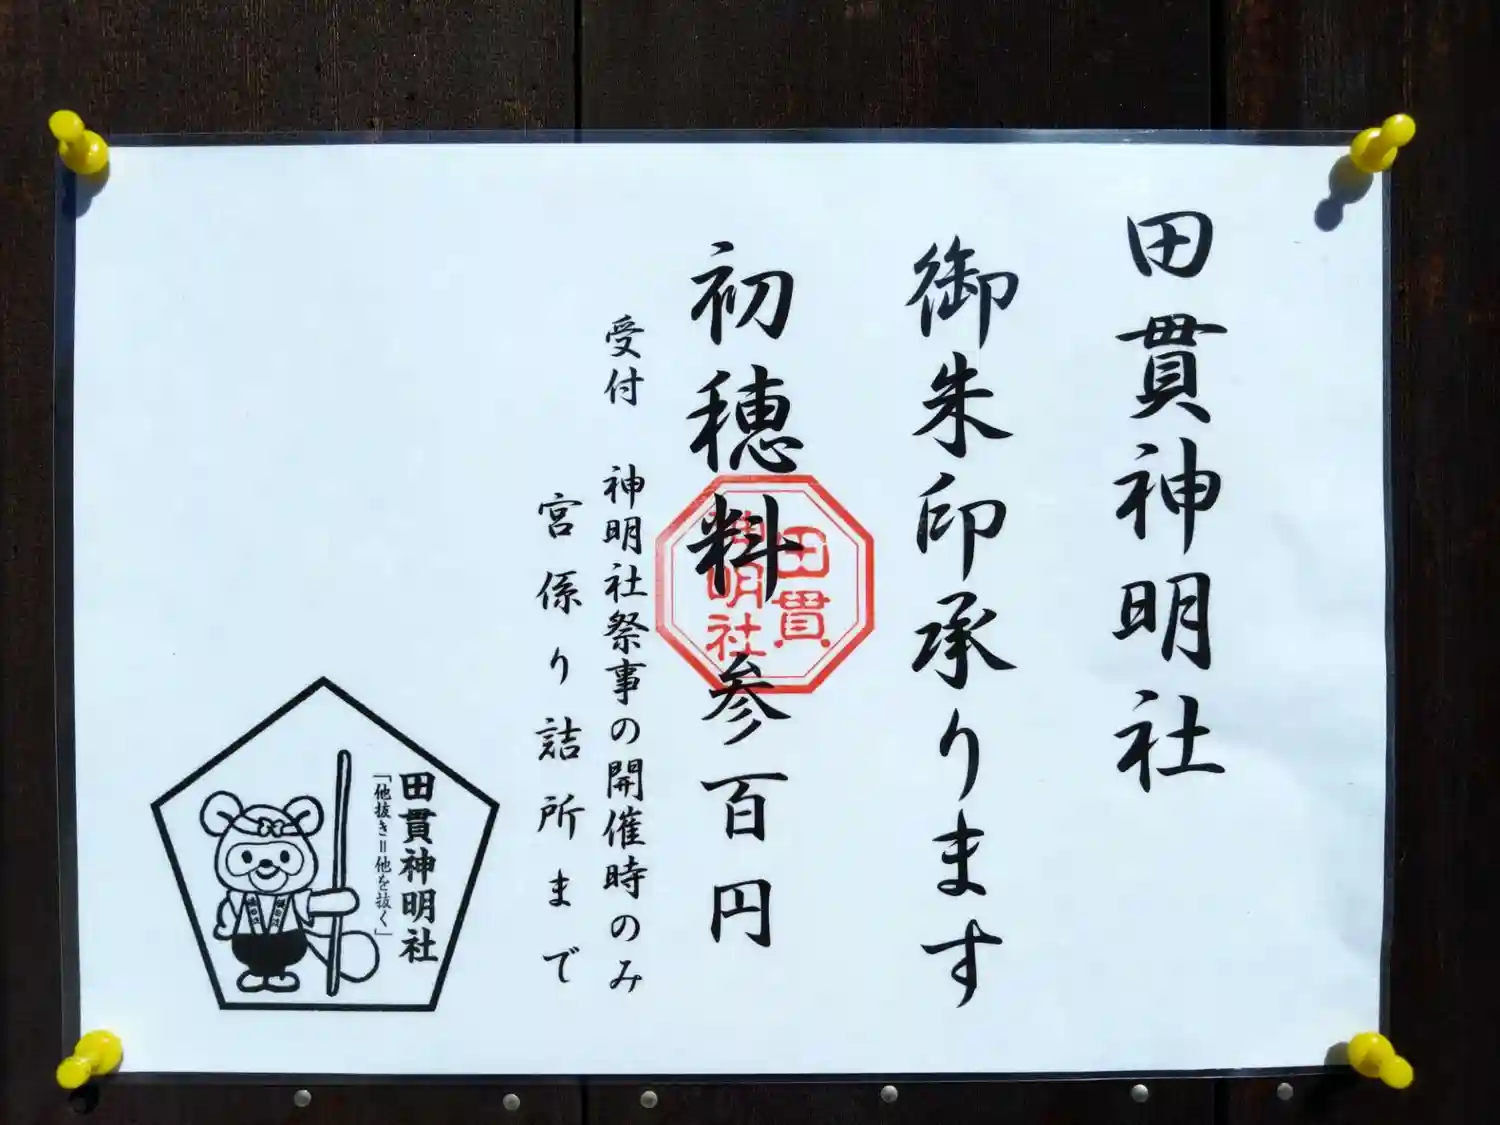 田貫神明社
御朱印承ります
初穂料 参百円
受付 神明社祭事の開催時のみ
宮係り詰所まで
田貫
神明社
田貫神明社
「他抜き=他を抜く」